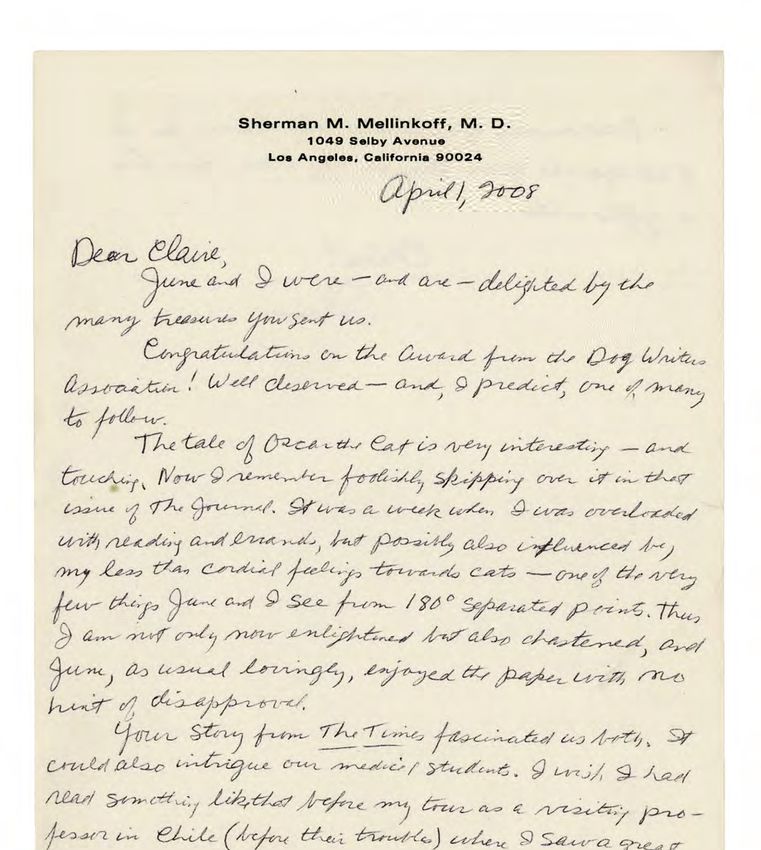 Sherman M. Mellinkoff, M. D.
1049 Selby Avenue
Los Angeles, California 90024
April 1, 2008
Dear Claire,
June and I were — and are — delighted by the
many treasures you sent us.
Congratulations on the Award from the Dog Writers
Association! Well deserved — and, I predict, one of many
to follow.
The tale of Oscar the Cat is very interesting — and
touching. Now I remember foolishly skipping over it in that
issue of The Journal. It was a week when I was overloaded
with reading and errands, but possibly also influenced by
my less than cordial feelings towards cats — one of the very
few things June and I see from 180° separated points. Thus
I am not only now enlightened but also chastened, and
June, as usual lovingly, enjoyed the paper with no
hint of disapproval.
Your story from The Times fascinated us both. It
could also intrigue our medical students. I wish I had
read something like that before my tour as a visiting pro-
fessor in Chile (before their troubles) where I saw a great